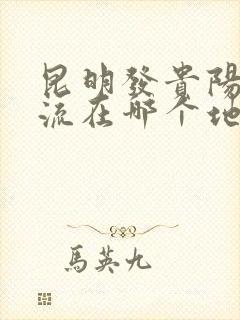 昆明發貴陽
流在哪个地
馬英九